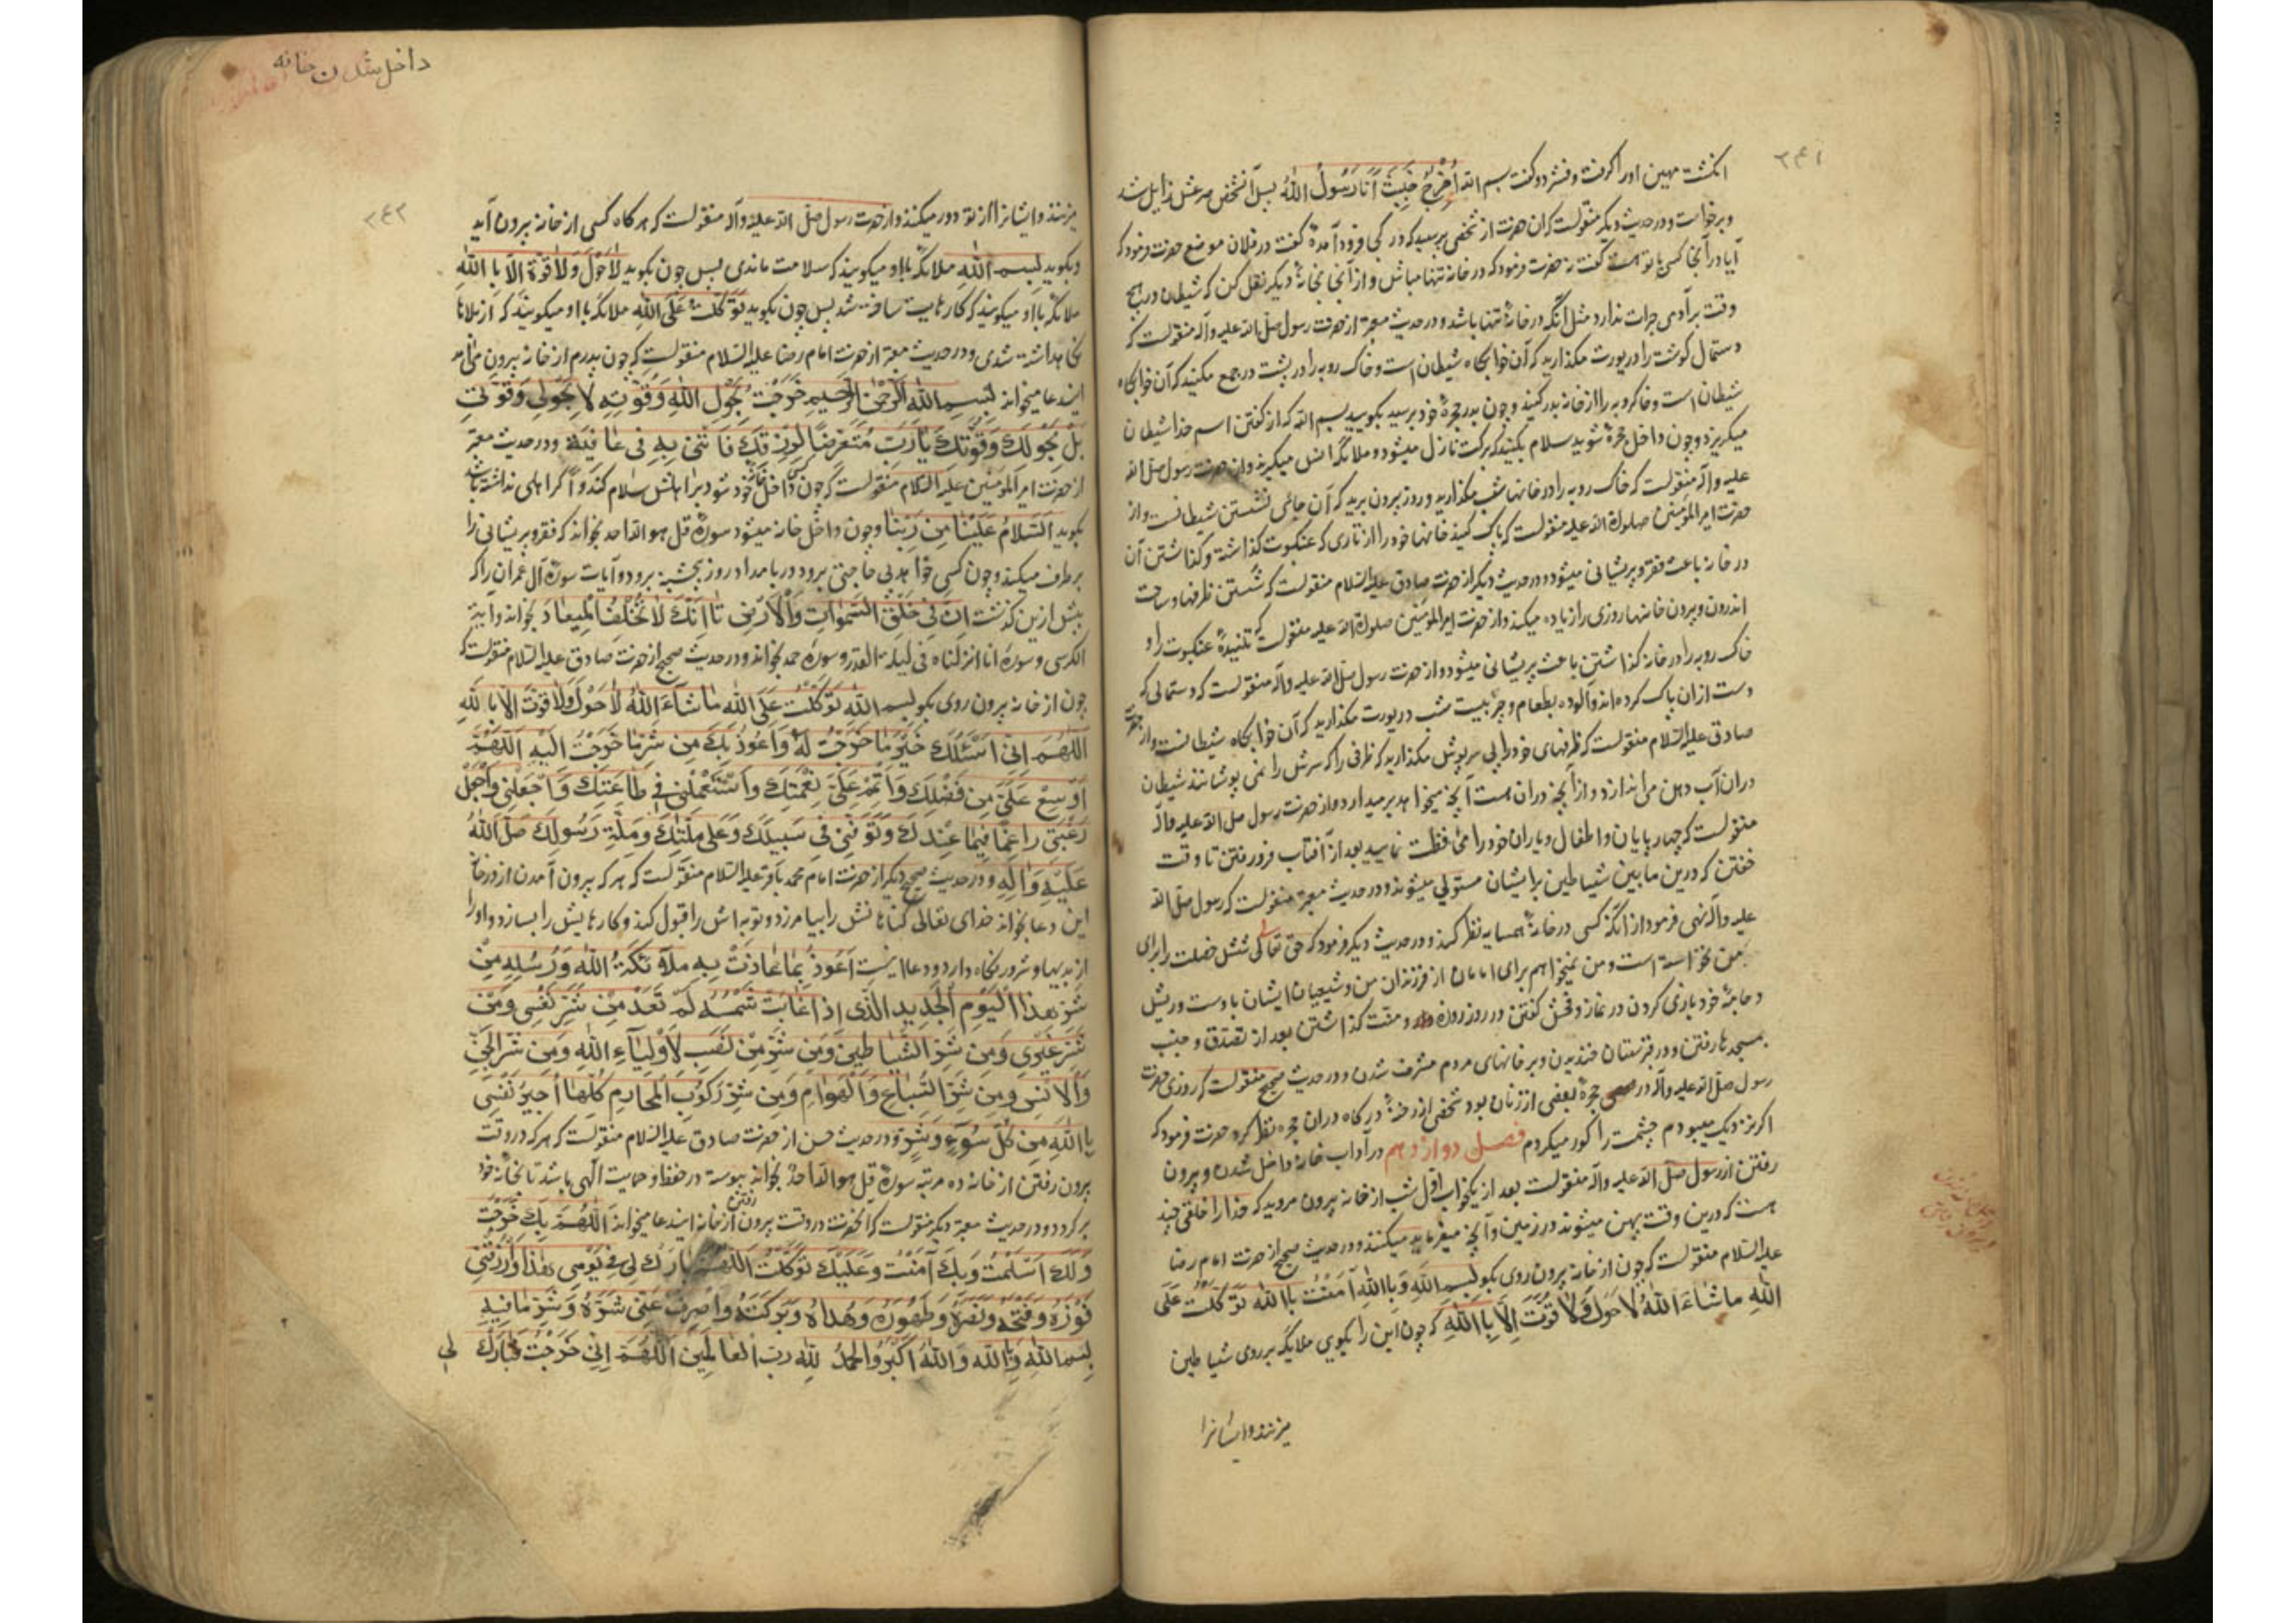 ۲۴۱
انکشت مهین او را کرفت و فشرد و کفت بسم الله اُخْرُجْ خَبِیثُ اَنَا رَسُولُ اللهُ پس آنشخص صرعش زایل شد
و برخواست و در حدیث دیکر منقولست که ان حضرت از شخصی پرسید که در کجا فرود آمدهٔ کفت در فلان موضع حضرت فرمود که
آیا در آنجا کسی با تو هست کفت نه حضرت فرمود که در خانه تنها مباش و از آنجا بخانهٔ دیکر نقل کن که شیطان در هیچ
وقت بر آدمی جرات ندارد مثل آنکه در خانهٔ تنها باشد و در حدیث معتبر از حضرت رسول صلی الله علیه و آله منقولست که
دستمال کوشت را در بیوت مکذارید که آن خوابکاه شیطان است و خاک روبه را در پشت در جمع مکنید که آن خوابکاه
شیطان است و خاکروبه را از خانه بدر کنید و چون بدر حجرهٔ خود برسید بکویید بسم الله که از کفتن اسم خدا شیطان
میکریزد و چون داخل حجرهٔ شوید سلام بکنید که برکت نازل میشود و ملائکه انس میکیرند و از حضرت رسول صلی الله
علیه و آله منقولست که خاک روبه را در خانها شب مکذارید و روز بیرون برید که آن جای نشستن شیطانست و از
حضرت امیر المؤمنین صلوات الله علیه منقولست که پاک کنید خانهای خود را از تاری که عنکبوت کذاشته و کذاشتن آن
در خانه باعث فقر و پریشانی میشود و در حدیث دیکر از حضرت صادق علیه السلام منقولست که شستن ظرفها و ساحت
اندرون و بیرون خانها روزی را زیاده میکند و از حضرت امیر المؤمنین صلوات الله علیه منقولست که تنیدهٔ عنکبوت را و
خاک روبه را در خانه کذاشتن باعث پریشانی میشود و از حضرت رسول صلی الله علیه و آله منقولست که دستمالی که
دست از ان پاک کرده اند و آلوده بطعام و چربیست شب در بیوت مکذارید که آن خوابکاه شیطانست و از حضرت
صادق علیه السلام منقولست که ظرفهای خود را بی سرپوش مکذارید که ظرفی را که سرش را نمی پوشانند شیطان
دران آب دهن می اندازد و از آنچه دران هست آنچه میخواهد بر میدارد و از حضرت رسول صلی الله علیه و آله
منقولست که چهارپایان و اطفال و یاران خود را محافظت نمایید بعد از آفتاب فرو رفتن تا وقت
خفتن که درین مابین شیاطین بر ایشان مستولی میشوند و در حدیث معتبر منقولست که رسول صلی الله
علیه و آله نهی فرمود از آنکه کسی در خانهٔ همسایه نظر کند و در حدیث دیکر فرمود که حق تعالی شش خصلت را برای
من نخواسته است و من نمیخواهم برای امامان از فرزندان من و شیعیان ایشان با دست و ریش
و جامهٔ خود بازی کردن در نماز و فحش کفتن در روز روزه و منّت کذاشتن بعد از تصدّق و جنب
بمسجدها رفتن و در قبرستان خندیدن و بر خانهای مردم مشرف شدن و در حدیث صحیح منقولست که روزی حضرت
رسول صلی الله علیه و آله در حجرهٔ بعضی از زنان بود شخصی از رخنهٔ درکاه دران حجره نظر کرد حضرت فرمود که
اکر نزدیک میبودم چشمت را کور میکردم فصل دوازدهم در آداب خانه داخل شدن و بیرون
رفتن از رسول صلّی الله علیه و آله منقولست بعد از یکخواب اوّل شب از خانه بیرون مروید که خدا را خلقی چند
هست که درین وقت پهن میشوند در زمین و آنچه میفرماید میکنند و در حدیث صحیح از حضرت امام رضا
علیه السلام منقولست که چون از خانه بیرون روی بکو بِسْمِ اللهِ وَبِاللهِ آمَنْتُ بِاللهِ تَوَکَّلْتُ عَلَی
اللهِ مَاشَاءَ اللهُ لَا حَوْلَ وَلَا قُوَّتَ اِلَّا بِاللهِ که چون این را بکویی ملایکه بر روی شیاطین
میزنند و ایشانرا
داخل شدن خانه
۲۴۲
میزنند و ایشانرا از تو دور میکنند و از حضرت رسول صلی الله علیه و آله منقولست که هر کاه کسی از خانه بیرون آید
و بکوید بِسْمِ اللهِ ملائکه با او میکویند که سلامت ماندی پس چون بکوید لَاحَوْلَ وَلَا قُوَّةَ اِلَّا بِاللهِ
ملائکه با او میکویند که کارهایت ساخته شد پس چون بکوید تَوَکَّلْتُ عَلَی اللهِ ملائکه با او میکویند که از بلاها
نکاهداشته شدی و در حدیث معتبر از حضرت امام رضا علیه السلام منقولست که چون پدرم از خانه بیرون می آمد
ایندعا میخواند بِسْمِ اللهِ الرَّحْمٰنِ الرَّحِیمِ خَرَجْتُ بِحَوْلِ اللهِ وَقُوَّتِهِ لَا بِحَوْلِی وَقُوَّتِی
بَلْ بِحَوْلِكَ وَقُوَّتِكَ یَارَبِّ مُتَعَرِّضًا لِرِزْقِكَ فَأْتِنِی بِهِ فِی عَافِیَةٍ و در حدیث معتبر
از حضرت امیر المؤمنین علیه السلام منقولست که چون کسی داخل خانه خود شود بر اهلش سلام کند و اکر اهلی نداشته باشد
بکوید اَلسَّلَامُ عَلَیْنَا مِنْ رَبِّنَا و چون داخل خانه میشود سورهٔ قل هو الله احد بخواند که فقر و پریشانی را
بر طرف میکند و چون کسی خواهد پی حاجتی برود در بامداد روز پنجشنبه برود و آیات سورهٔ آل عمران را که
پیش ازین کذشت اِنَّ فِی خَلْقِ السَّمٰوَاتِ وَالْاَرْضِ تا اِنَّكَ لَا تُخْلِفُ الْمِیعَادَ بخواند و آیة
الکرسی و سورهٔ انا انزلناه فی لیلة القدر و سورهٔ حمد بخواند و در حدیث صحیح از حضرت صادق علیه السلام منقولست که
چون از خانه بیرون روی بکو بِسْمِ اللهِ تَوَکَّلْتُ عَلَی اللهِ مَاشَاءَ اللهُ لَا حَوْلَ وَلَا قُوَّتَ اِلَّا بِاللهِ
اَللّٰهُمَّ اِنِّی اَسْئَلُكَ خَیْرَ مَا خَرَجْتُ لَهُ وَاَعُوذُ بِكَ مِنْ شَرِّ مَا خَرَجْتُ اِلَیْهِ اَللّٰهُمَّ
اَوْسِعْ عَلَیَّ مِنْ فَضْلِكَ وَاَتْمِمْ عَلَیَّ نِعْمَتَكَ وَاسْتَعْمِلْنِی فِی طَاعَتِكَ وَاجْعَلْنِی وَاجْعَلْ
رَغْبَتِی رَاغِمًا فِیمَا عِنْدَكَ وَتَوَفَّنِی فِی سَبِیلِكَ وَعَلَی مِلَّتِكَ وَمِلَّةِ رَسُولِكَ صَلَّی اللهُ
عَلَیْهِ وَاٰلِهِ و در حدیث صحیح دیکر از حضرت امام محمد باقر علیه السلام منقولست که هر که بیرون آمدن از در خانهٔ
این دعا بخواند خدای تعالی کناهانش را بیامرزد و توبه اش را قبول کند و کارهایش را بسازد و او را
از بدیها و شرور نکاه دارد و دعا اینست اَعُوذُ بِمَا عَاذَتْ بِهِ مَلَآئِکَةُ اللهِ وَرُسُلِهِ مِنْ
شَرِّ هٰذَا الْیَوْمِ الْجَدِیدِ الَّذِی اِذَا غَابَتْ شَمْسُهُ لَمْ تَعُدْ مِنْ شَرِّ نَفْسِی وَمِنْ
شَرِّ غَیْرِی وَمِنْ شَرِّ الشَّیَاطِینِ وَمِنْ شَرِّ مَنْ نَصَبَ لِاَوْلِیَآءِ اللهِ وَمِنْ شَرِّ الْجِنِّ
وَالْاِنْسِ وَمِنْ شَرِّ السِّبَاعِ وَالْهَوَامِ وَمِنْ شَرِّ رُکُوبِ الْمَحَارِمِ کُلِّهَا اُجِیرُ نَفْسِی
بِاللهِ مِنْ کُلِّ سُوْءٍ وَشَرٍّ و در حدیث حسن از حضرت صادق علیه السلام منقولست که هر که در وقت
بیرون رفتن از خانه ده مرتبه سورهٔ قل هو الله احد بخواند پیوسته در حفظ و حمایت الهی باشد تا بخانهٔ خود
بر کردد و در حدیث معتبر دیکر منقولست که آنحضرت در وقت بیرون رفتن از خانه ایندعا میخواند اَللّٰهُمَّ بِكَ خَرَجْتُ
وَلَكَ اَسْلَمْتُ وَبِكَ آمَنْتُ وَعَلَیْكَ تَوَکَّلْتُ اَللّٰهُمَّ بَارِكْ لِی فِی یَوْمِی هٰذَا وَارْزُقْنِی
فَوْزَهُ وَفَتْحَهُ وَنَصْرَهُ وَطَهُورَهُ وَهُدَاهُ وَبَرَکَتَهُ وَاصْرِفْ عَنِّی شَرَّهُ وَشَرَّ مَا فِیهِ
بِسْمِ اللهِ وَبِاللهِ وَاللهُ اَکْبَرُ وَالْحَمْدُ لِلّٰهِ رَبِّ الْعَالَمِینَ اَللّٰهُمَّ اِنِّی خَرَجْتُ فَبَارِكْ لِی